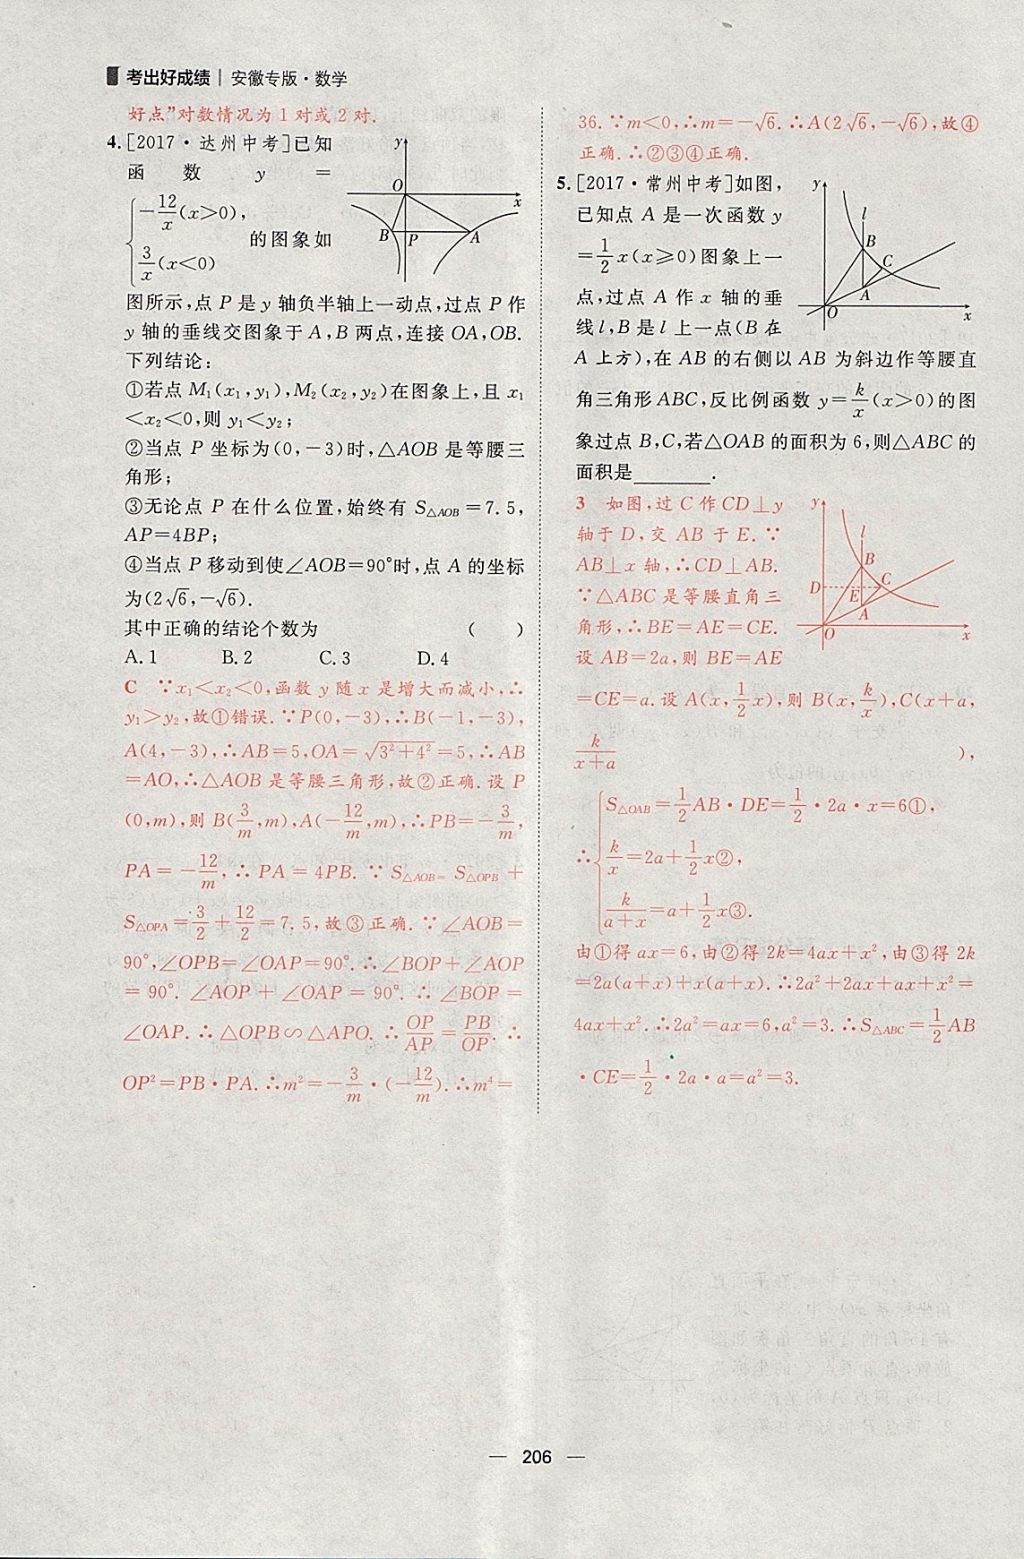 考出好成绩 | 安徽专版·数学
好点”对数情况为 1 对或 2 对.
4.[2017·达州中考]已知
函 数 y =
{ -12/x (x>0),
3/x (x<0)
的图象如
图所示,点 P 是 y 轴负半轴上一动点,过点 P 作
y 轴的垂线交图象于 A,B 两点,连接 OA,OB.
下列结论:
①若点 M₁(x₁,y₁),M₂(x₂,y₂)在图象上,且 x₁
<x₂<0,则 y₁<y₂;
②当点 P 坐标为(0,-3)时,△AOB 是等腰三
角形;
③无论点 P 在什么位置,始终有 S△AOB=7.5,
AP=4BP;
④当点 P 移动到使∠AOB=90°时,点 A 的坐标
为(2√6,-√6).
其中正确的结论个数为 ( )
A.1 B.2 C.3 D.4
y
O
x
B P A
C ∵x₁<x₂<0,函数 y 随 x 是增大而减小,∴
y₁>y₂,故①错误.∵P(0,-3),∴B(-1,-3),
A(4,-3),∴AB=5,OA=√(3²+4²)=5,∴AB
=AO,∴△AOB 是等腰三角形,故②正确.设 P
(0,m),则 B(3/m,m),A(-12/m,m),∴PB=-3/m,
PA=-12/m,∴PA=4PB.∵S△AOB=S△OPB+
S△OPA=3/2+12/2=7.5,故③正确.∵∠AOB=
90°,∠OPB=∠OAP=90°.∴∠BOP+∠AOP
=90°.∠AOP+∠OAP=90°.∴∠BOP=
∠OAP.∴△OPB∽△APO.∴OP/AP=PB/OP.∴
OP²=PB·PA.∴m²=-3/m·(-12/m).∴m⁴=
36.∵m<0,∴m=-√6.∴A(2√6,-√6),故④
正确.∴②③④正确.
5.[2017·常州中考]如图,
已知点 A 是一次函数 y
=1/2 x(x≥0)图象上一
点,过点 A 作 x 轴的垂
线 l,B 是 l 上一点(B 在
A 上方),在 AB 的右侧以 AB 为斜边作等腰直
角三角形 ABC,反比例函数 y=k/x(x>0)的图
象过点 B,C,若△OAB 的面积为 6,则△ABC 的
面积是________.
y
l
B
C
A
O
x
3 如图,过 C 作 CD⊥y
轴于 D,交 AB 于 E.∵
AB⊥x 轴,∴CD⊥AB.
∵△ABC 是等腰直角三
角形,∴BE=AE=CE.
设 AB=2a,则 BE=AE
=CE=a.设 A(x,1/2 x),则 B(x,k/x),C(x+a,
k/(x+a)),
y
l
B
D
E
C
A
O
x
∴{ S△OAB=1/2 AB·DE=1/2·2a·x=6①,
k/x=2a+1/2 x②,
k/(a+x)=a+1/2 x③.
由①得 ax=6,由②得 2k=4ax+x²,由③得 2k
=2a(a+x)+x(a+x).∴2a²+2ax+ax+x²=
4ax+x².∴2a²=ax=6,a²=3.∴S△ABC=1/2 AB
·CE=1/2·2a·a=a²=3.
— 206 —